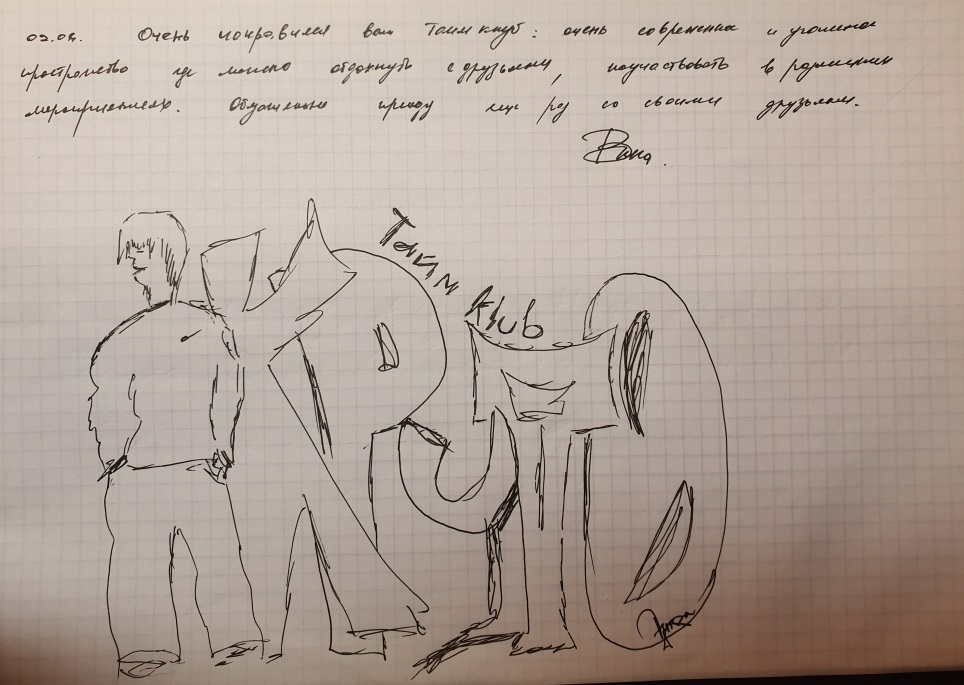 02.04. Очень понравился ваш Тайм клуб: очень современна и уютное
пространство где можно отдохнуть с друзьями, поучаствовать в различных
мероприятиях. Обязательно приеду еще раз со своими друзьями.
Вова.
Тайм
klub
КРУТО